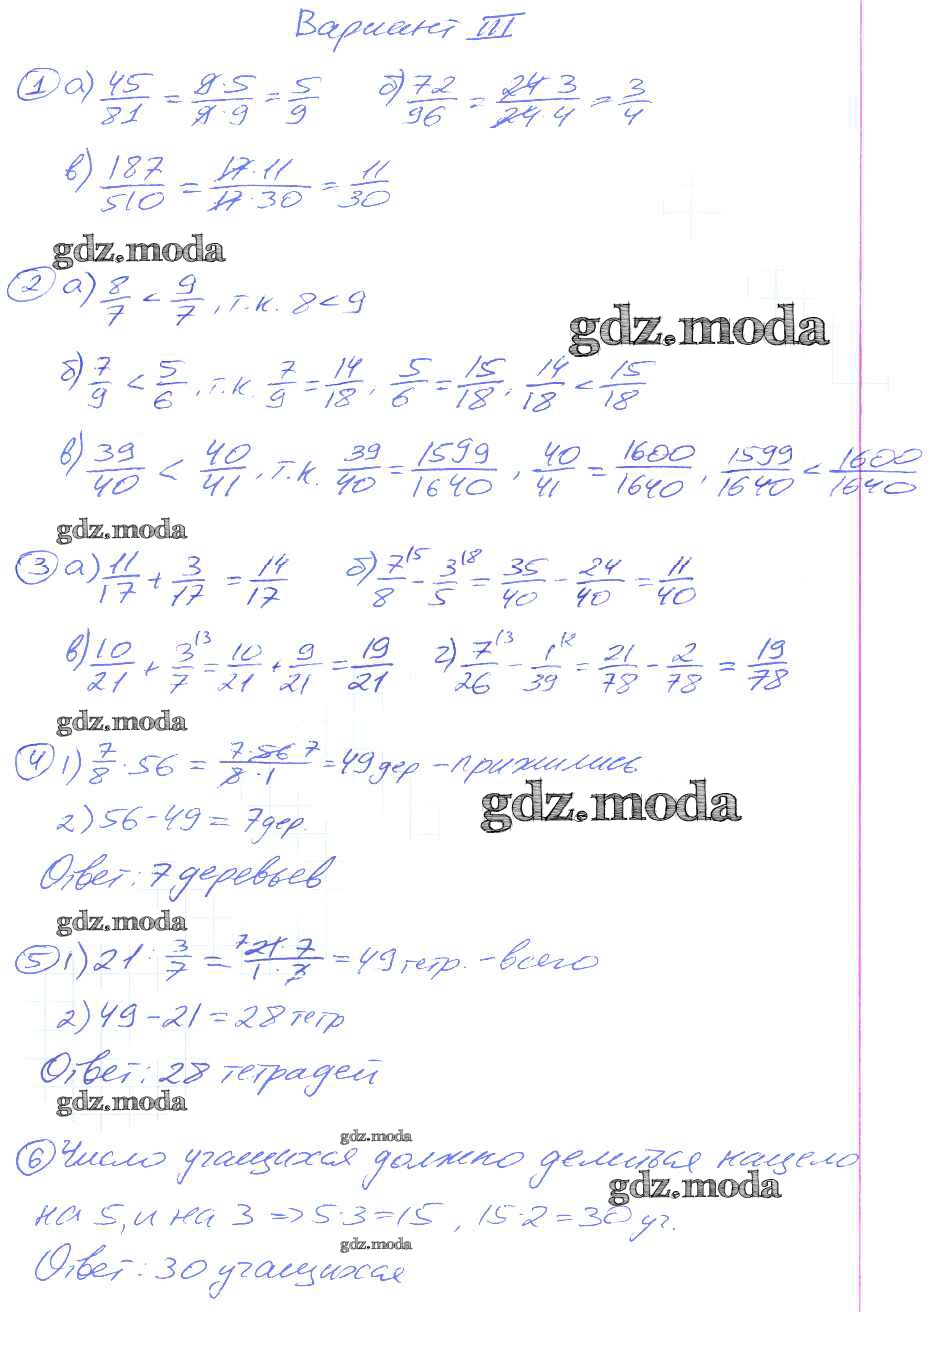 Вариант III
1 а) 45/81 = 9·5/9·9 = 5/9 б) 72/96 = 24·3/24·4 = 3/4
в) 187/510 = 17·11/17·30 = 11/30
gdz.moda
2 а) 8/7 < 9/7, т.к. 8 < 9
gdz.moda
б) 7/9 < 5/6, т.к. 7/9 = 14/18, 5/6 = 15/18, 14/18 < 15/18
в) 39/40 < 40/41, т.к. 39/40 = 1599/1640, 40/41 = 1600/1640, 1599/1640 < 1600/1640
gdz.moda
3 а) 11/17 + 3/17 = 14/17 б) 7/8 ⁽⁵ - 3/5 ⁽⁸ = 35/40 - 24/40 = 11/40
в) 10/21 + 3/7 ⁽³ = 10/21 + 9/21 = 19/21 г) 7/26 ⁽³ - 1/39 ⁽² = 21/78 - 2/78 = 19/78
gdz.moda
4 1) 7/8 · 56 = 7·56 7/8·1 = 49 дер - прижились
gdz.moda
2) 56 - 49 = 7 дер.
Ответ: 7 деревьев
gdz.moda
5 1) 21 : 3/7 = 7 21·7/1·3 = 49 тетр. - всего
2) 49 - 21 = 28 тетр
Ответ: 28 тетрадей
gdz.moda
gdz.moda
6 Число учащихся должно делиться нацело
gdz.moda
на 5, и на 3 => 5·3=15, 15·2=30 уч.
gdz.moda
Ответ: 30 учащихся